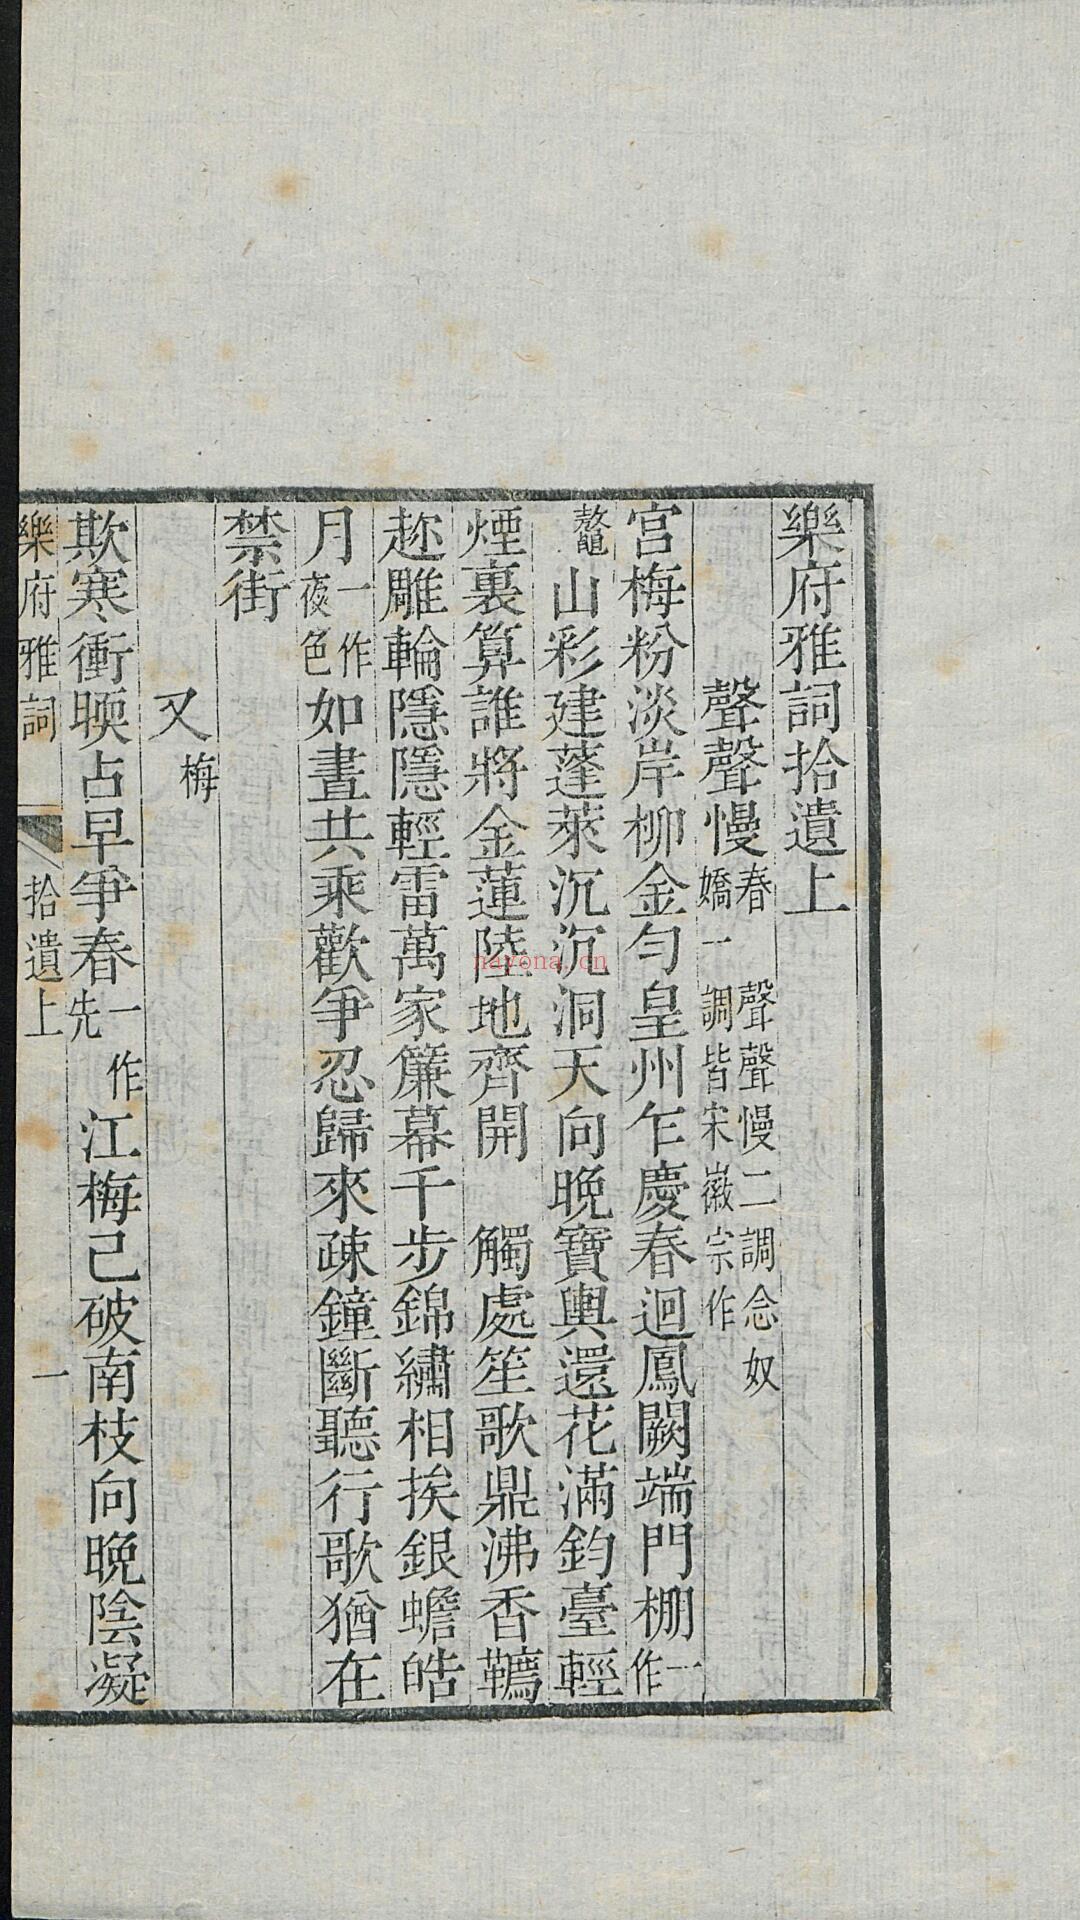 樂府雅詞拾遺上
聲聲慢春 聲聲慢二調念奴嬌一調皆宋徽宗作
宮梅粉淡岸柳金勻皇州乍慶春迴鳳闕端門棚一作
鼇山彩建蓬萊沉沉洞天向晚寶輿還花滿鈞臺輕
煙裏算誰將金蓮陸地齊開 觸處笙歌鼎沸香韉
趂雕輪隱隱輕雷萬家簾幕千步錦繡相挨銀蟾皓
月一作夜色如晝共乘歡爭忍歸來疎鐘斷聽行歌猶在
禁街
又梅
欺寒衝暎占早爭春一作先江梅已破南枝向晚陰凝
樂府雅詞 拾遺上 一
nayona.cn